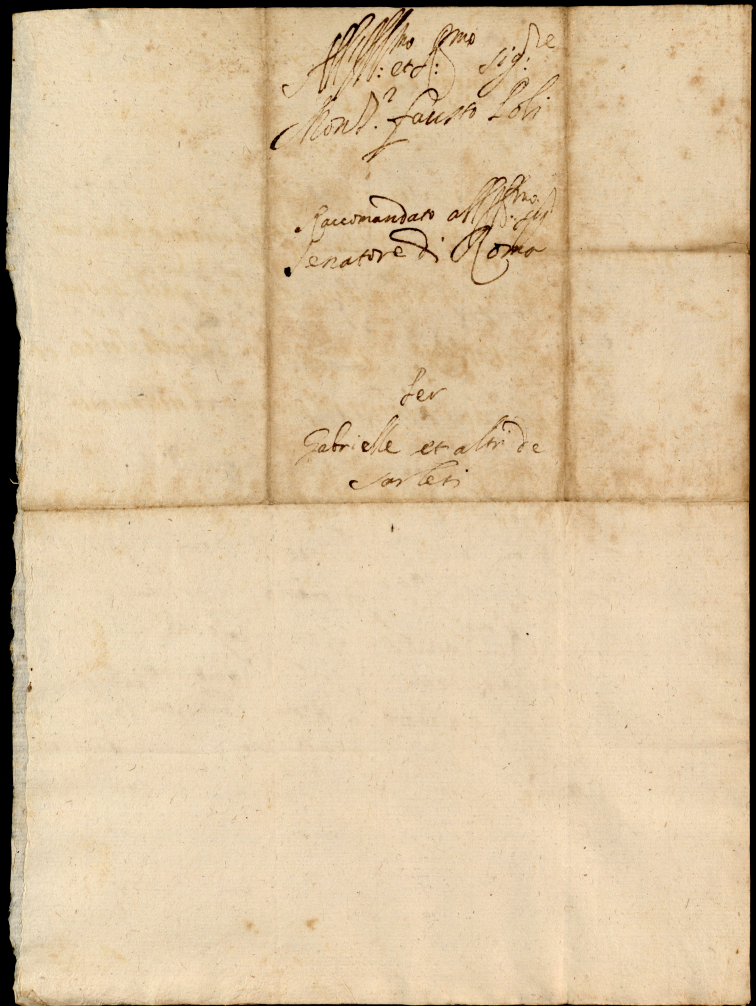 All'Ill.mo et R.mo Sig.re
Mons.r Fausto Poli
Raccomandato all'Ill.mo Sig.r
Senatore di Roma
Per
Gabrielle et altri de